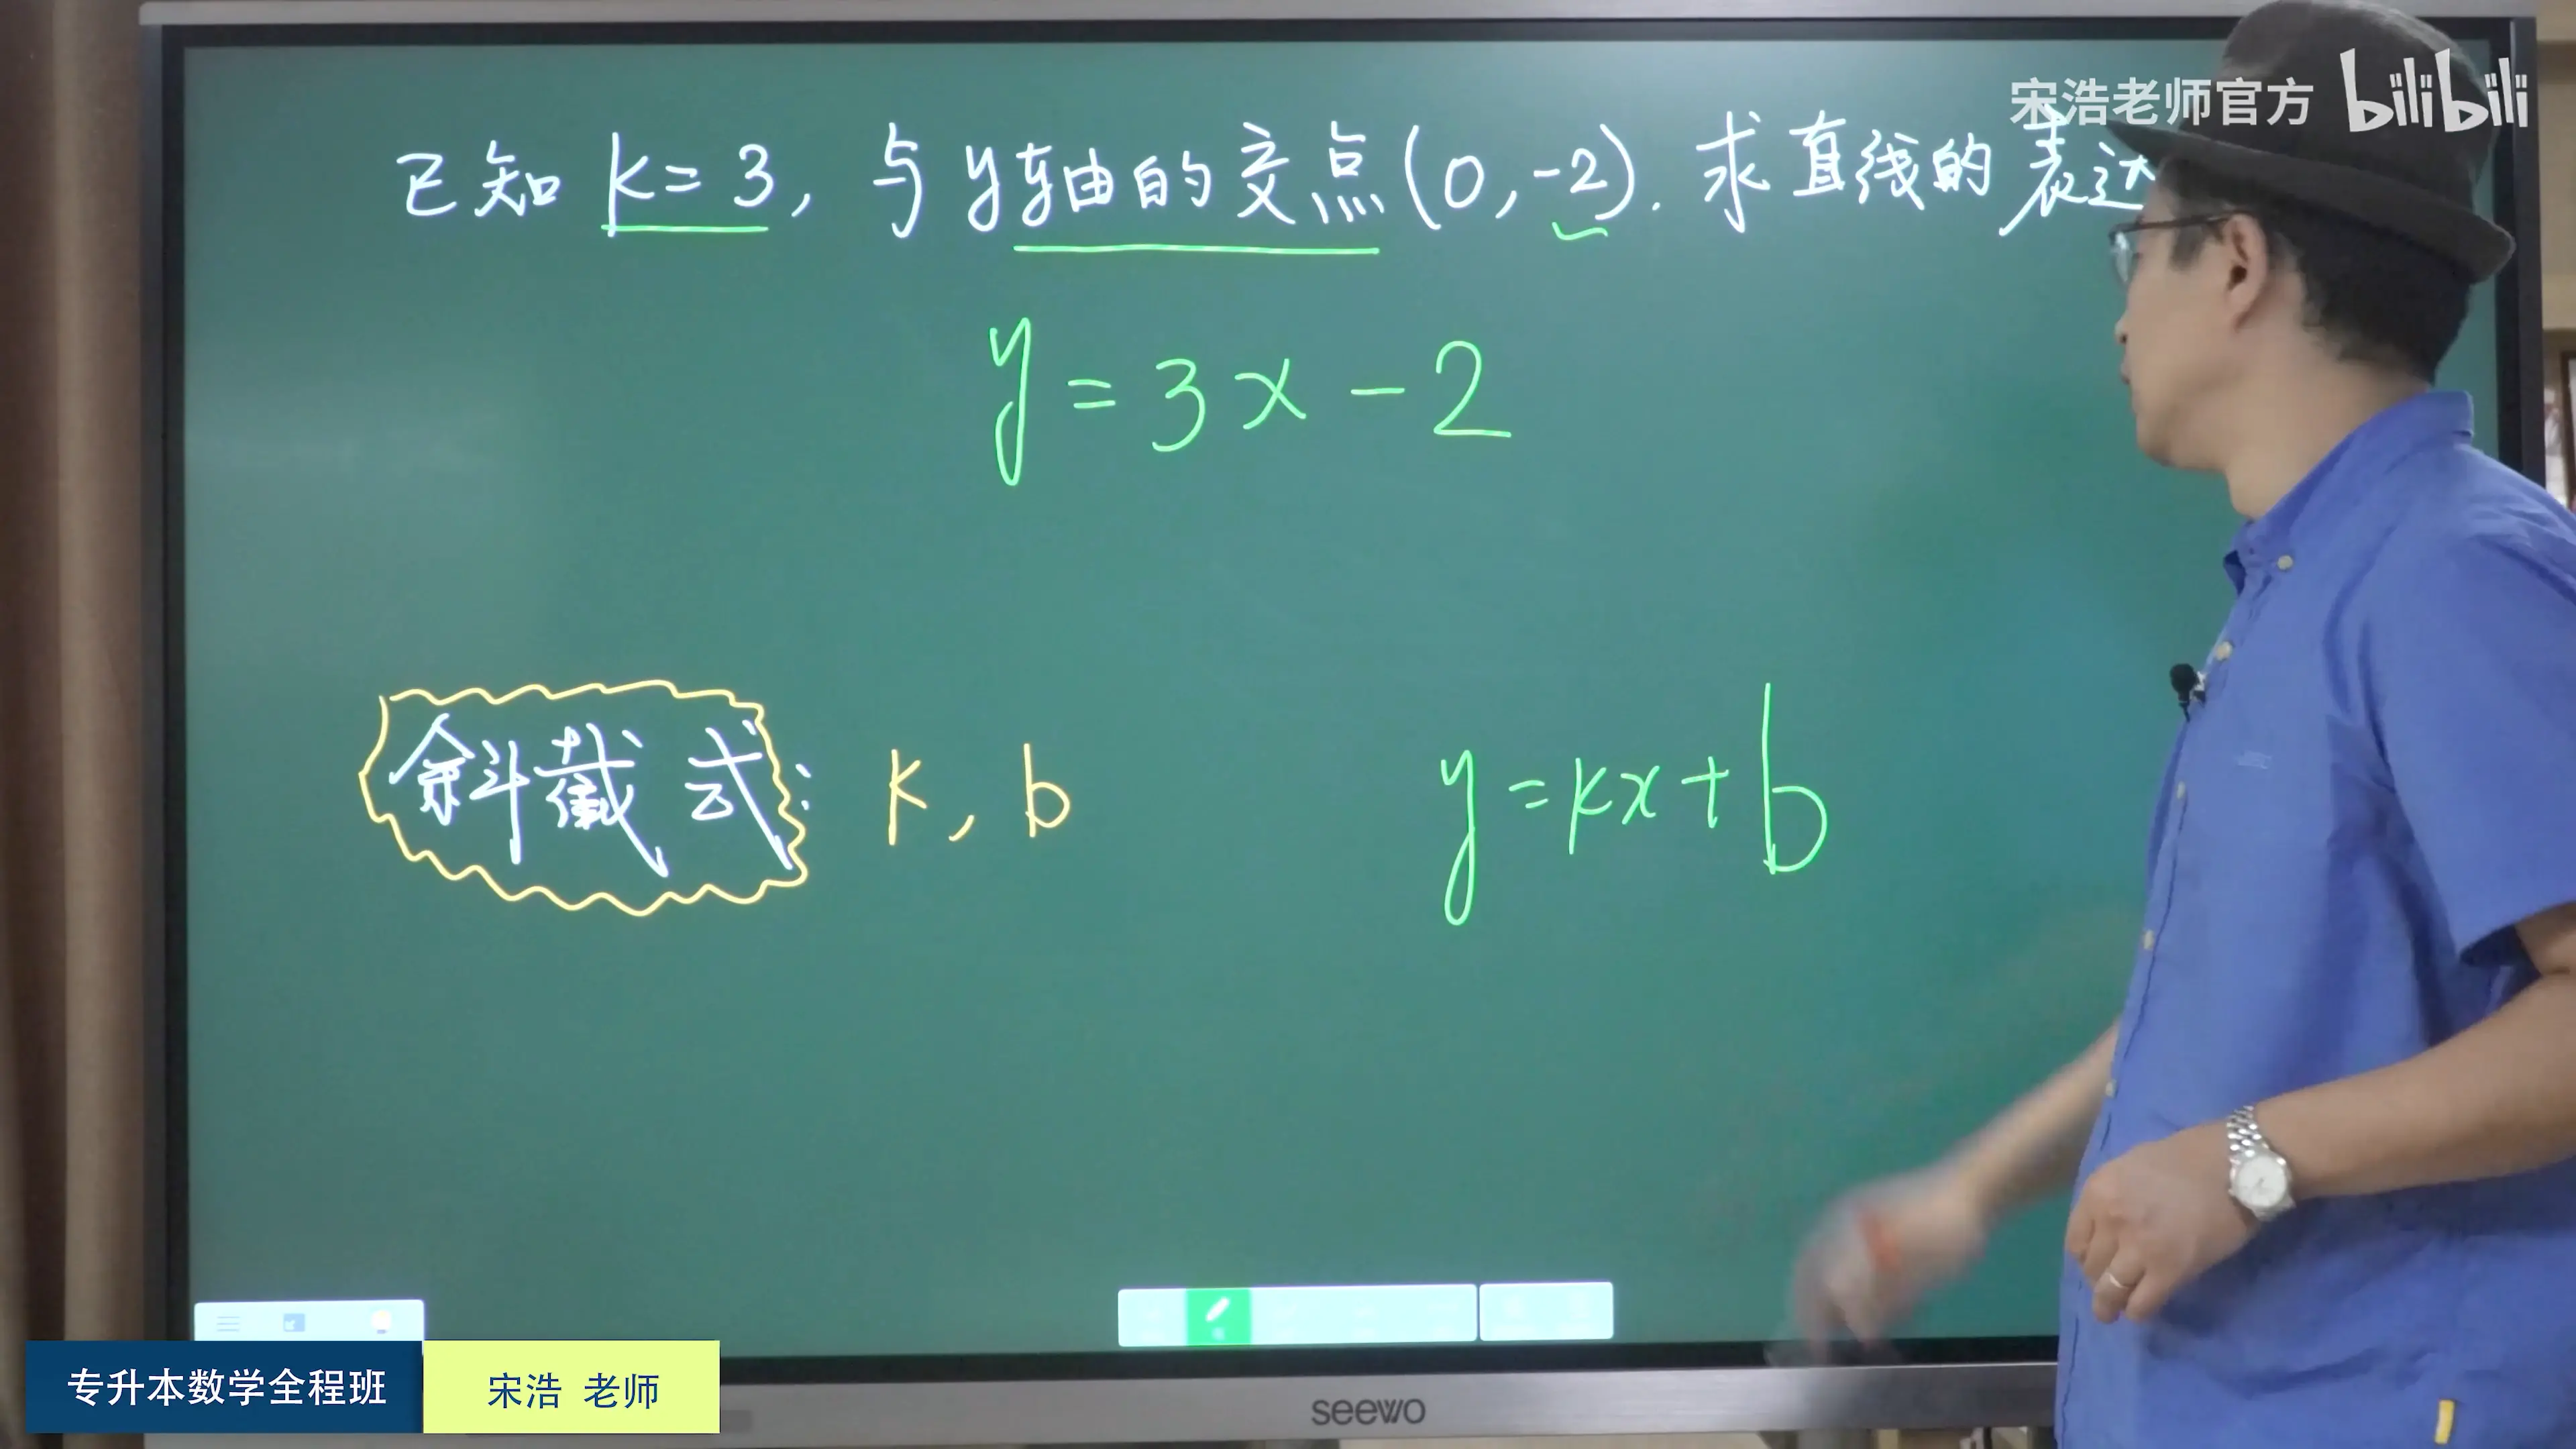 宋浩老师官方 bilibili
已知 k=3, 与y轴的交点(0,-2). 求直线的表达
y=3x-2
斜截式: k, b
y=kx+b
专升本数学全程班
宋浩 老师
seewo